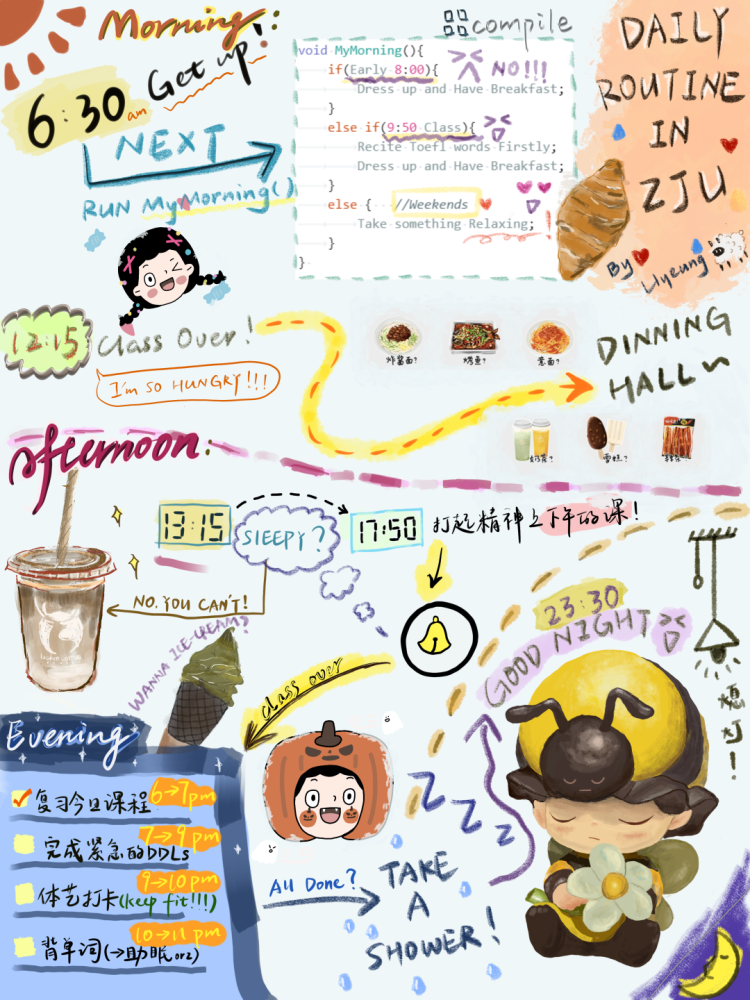 Morning:
Get up!
6:30 am
NEXT
RUN MyMorning()
compile
void MyMorning(){
if(Early 8:00){
NO!!!
Dress up and Have Breakfast;
}
else if(9:50 Class){
Recite Toefl words Firstly;
Dress up and Have Breakfast;
}
else { //Weekends
Take something Relaxing;
}
}
DAILY
ROUTINE
IN
ZJU
By
12:15
Class Over!
I'm SO HUNGRY!!!
炸酱面?
烤鱼?
意面?
DINNING
HALL
奶茶?
雪糕?
Afternoon:
13:15
SlEEPY?
17:50
打起精神上下午的课!
NO. YOU CAN'T!
WANNA ICE-CREAM?
Class over
23:30
GOOD NIGHT
熄灯!
Evening
复习今日课程 6→7pm
完成紧急的DDLs 7→9 pm
体艺打卡(keep fit!!!) 9→10pm
背单词(→助眠orz) 10→11 pm
All Done?
TAKE
A
SHOWER!
Z
Z
Z